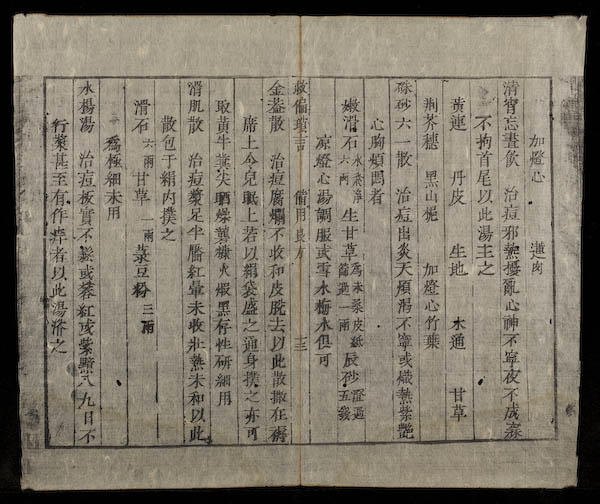 加燈心　蓮肉
清宵忘晝飲　治痘邪熱擾亂心神不寧夜不成寐
不拘首尾以此湯主之
黃連　丹皮　生地　木通　甘草
荆芥穗　黑山梔　加燈心竹葉
硃砂六一散　治痘出炎天煩渴不寧或熾熱紫艷
心胸煩悶者
嫩滑石水飛淨六兩　生甘草為末桑皮紙篩過一兩　辰砂澄過五錢
凉燈心湯調服或雪水梅水俱可
救偏瑣言　備用良方　三
金菱散　治痘腐爛不收和皮脫去以此散撒在褥
席上令兒眠上若以絹袋盛之通身撲之亦可
敗黃牛糞尖晒燥礱糠火煅黑存性研細用
滑肌散　治痘漿足半謄紅暈未收壯熱未和以此
散包于絹內撲之
滑石六兩　甘草一兩　菉豆粉三兩
為極細末用
水楊湯　治痘板實不鬆或蓉紅或紫黯八九日不
行漿甚至有作痒者以此湯濟之